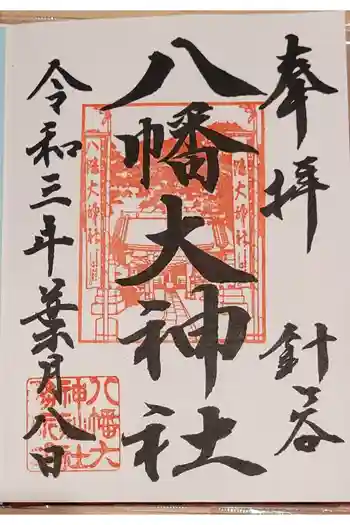 奉拝
針ヶ谷
八幡大神社
令和三年葉月八日
八幡大神社
八幡大神社